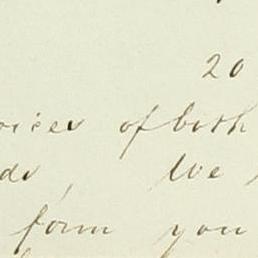 20
oices of both
ds, We
form you